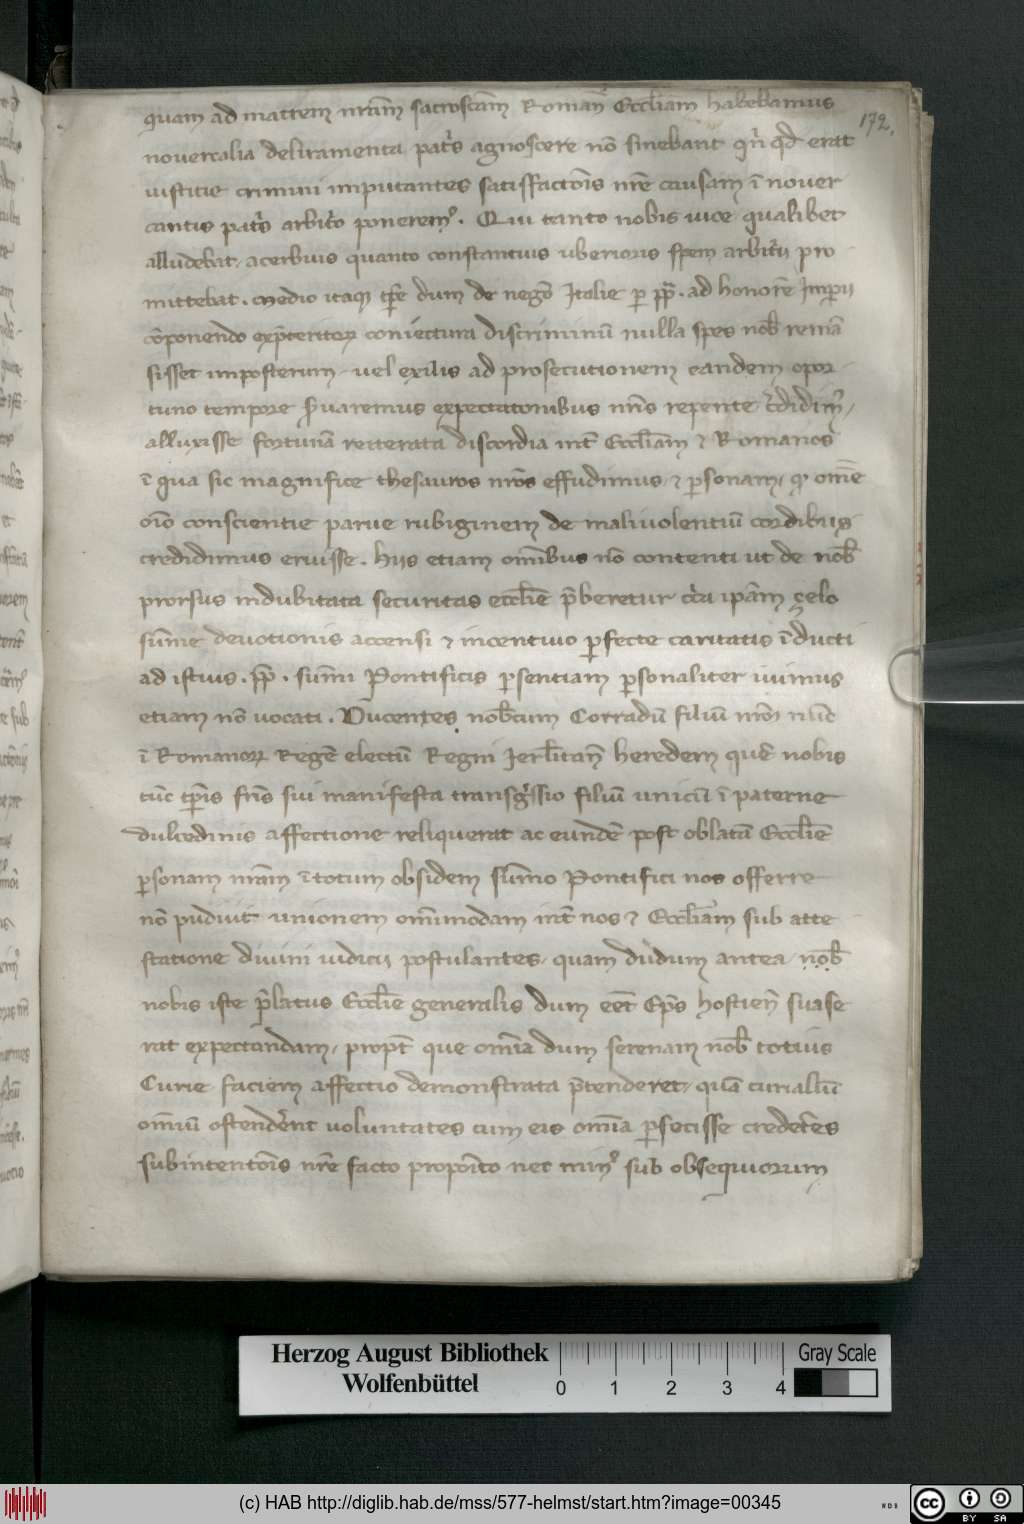 quam ad matrem nr̄am sacros̄cam Roman̄ Eccl̄iam habebamus
172.
nouercalia deliramenta pat̄s agnoscere nō sinebant qn̄ qd̄ erat
iustitie crimini imputantes satisfactōis nr̄e causam ī nouer
cantis pat̄s arbit̄o poneremꝰ. Qui tanto nobis uice qualibet
alludebat, acerbius quanto constantius uberioris spem arbit̄ii pro
mittebat. medio itaqꝫ tp̄e dum de negō Italie ꝑ pp̄. ad honorē Imp̄ii
cōponendo exp̄teritoꝝ coniectura discriminū nulla spes nob̄ remā
sisset imposterum, uel exilis ad prosecutionem eandem opor
tuno tempore s̄uaremus expectatonibus nr̄is repente c̄didimꝰ,
alluxisse fortunā reiterata discordia int̄ Eccl̄iam ⁊ Romanos
ī qua sic magnifice thesauros nr̄os effudimus, ⁊ ꝑsonam, qꝫ om̄ē
oīo conscientie parue rubiginem de maliuolentiū cordibus
credidimus eruisse. hiis etiam om̄ibus nō contenti ut de nob̄
prorsus indubitata securitas eccl̄ie p̄beretur cc̄a ip̄am çelo
sūme deuotionis accensi ⁊ incentiuo ꝑfecte caritatis īducti
ad istius. pp̄. sūmi Pontificis p̄sentiam ꝑsonaliter iuimus
etiam nō uocati. Ducentes nob̄cum Corradū filiū nr̄m nūc
ī Romanoꝝ Regē electū Regni Jerl̄itan̄ heredem quē nobis
tūc tp̄is fr̄is sui manifesta transḡssio filiū unicū ī paterne
dulcedinis affectione reliquerat ac eundē post oblatā Eccl̄ie
ꝑsonam nr̄am ī totum obsidem sūmo Pontifici nos offerre
nō puduit unionem om̄imodam int̄ nos ⁊ Eccl̄iam sub atte
statione diuini iudicij postulantes, quam dudum antea nob̄
nobis iste p̄latus Eccl̄ie generalis dum eēt Ep̄s hostien̄ suase
rat expectandam, propt̄ que om̄ia dum serenam nob̄ totius
Curie faciem affectio demonstrata p̄tenderet, quā curialiū
om̄iū ostend̄ent uoluntates cum eis om̄ia ꝑfecisse credētes
subintentōis nr̄e facto propoīto nec minꝰ sub obsequiorum
Herzog August Bibliothek
Wolfenbüttel
0 1 2 3 4
Gray Scale
(c) HAB http://diglib.hab.de/mss/577-helmst/start.htm?image=00345
WDB
cc BY SA